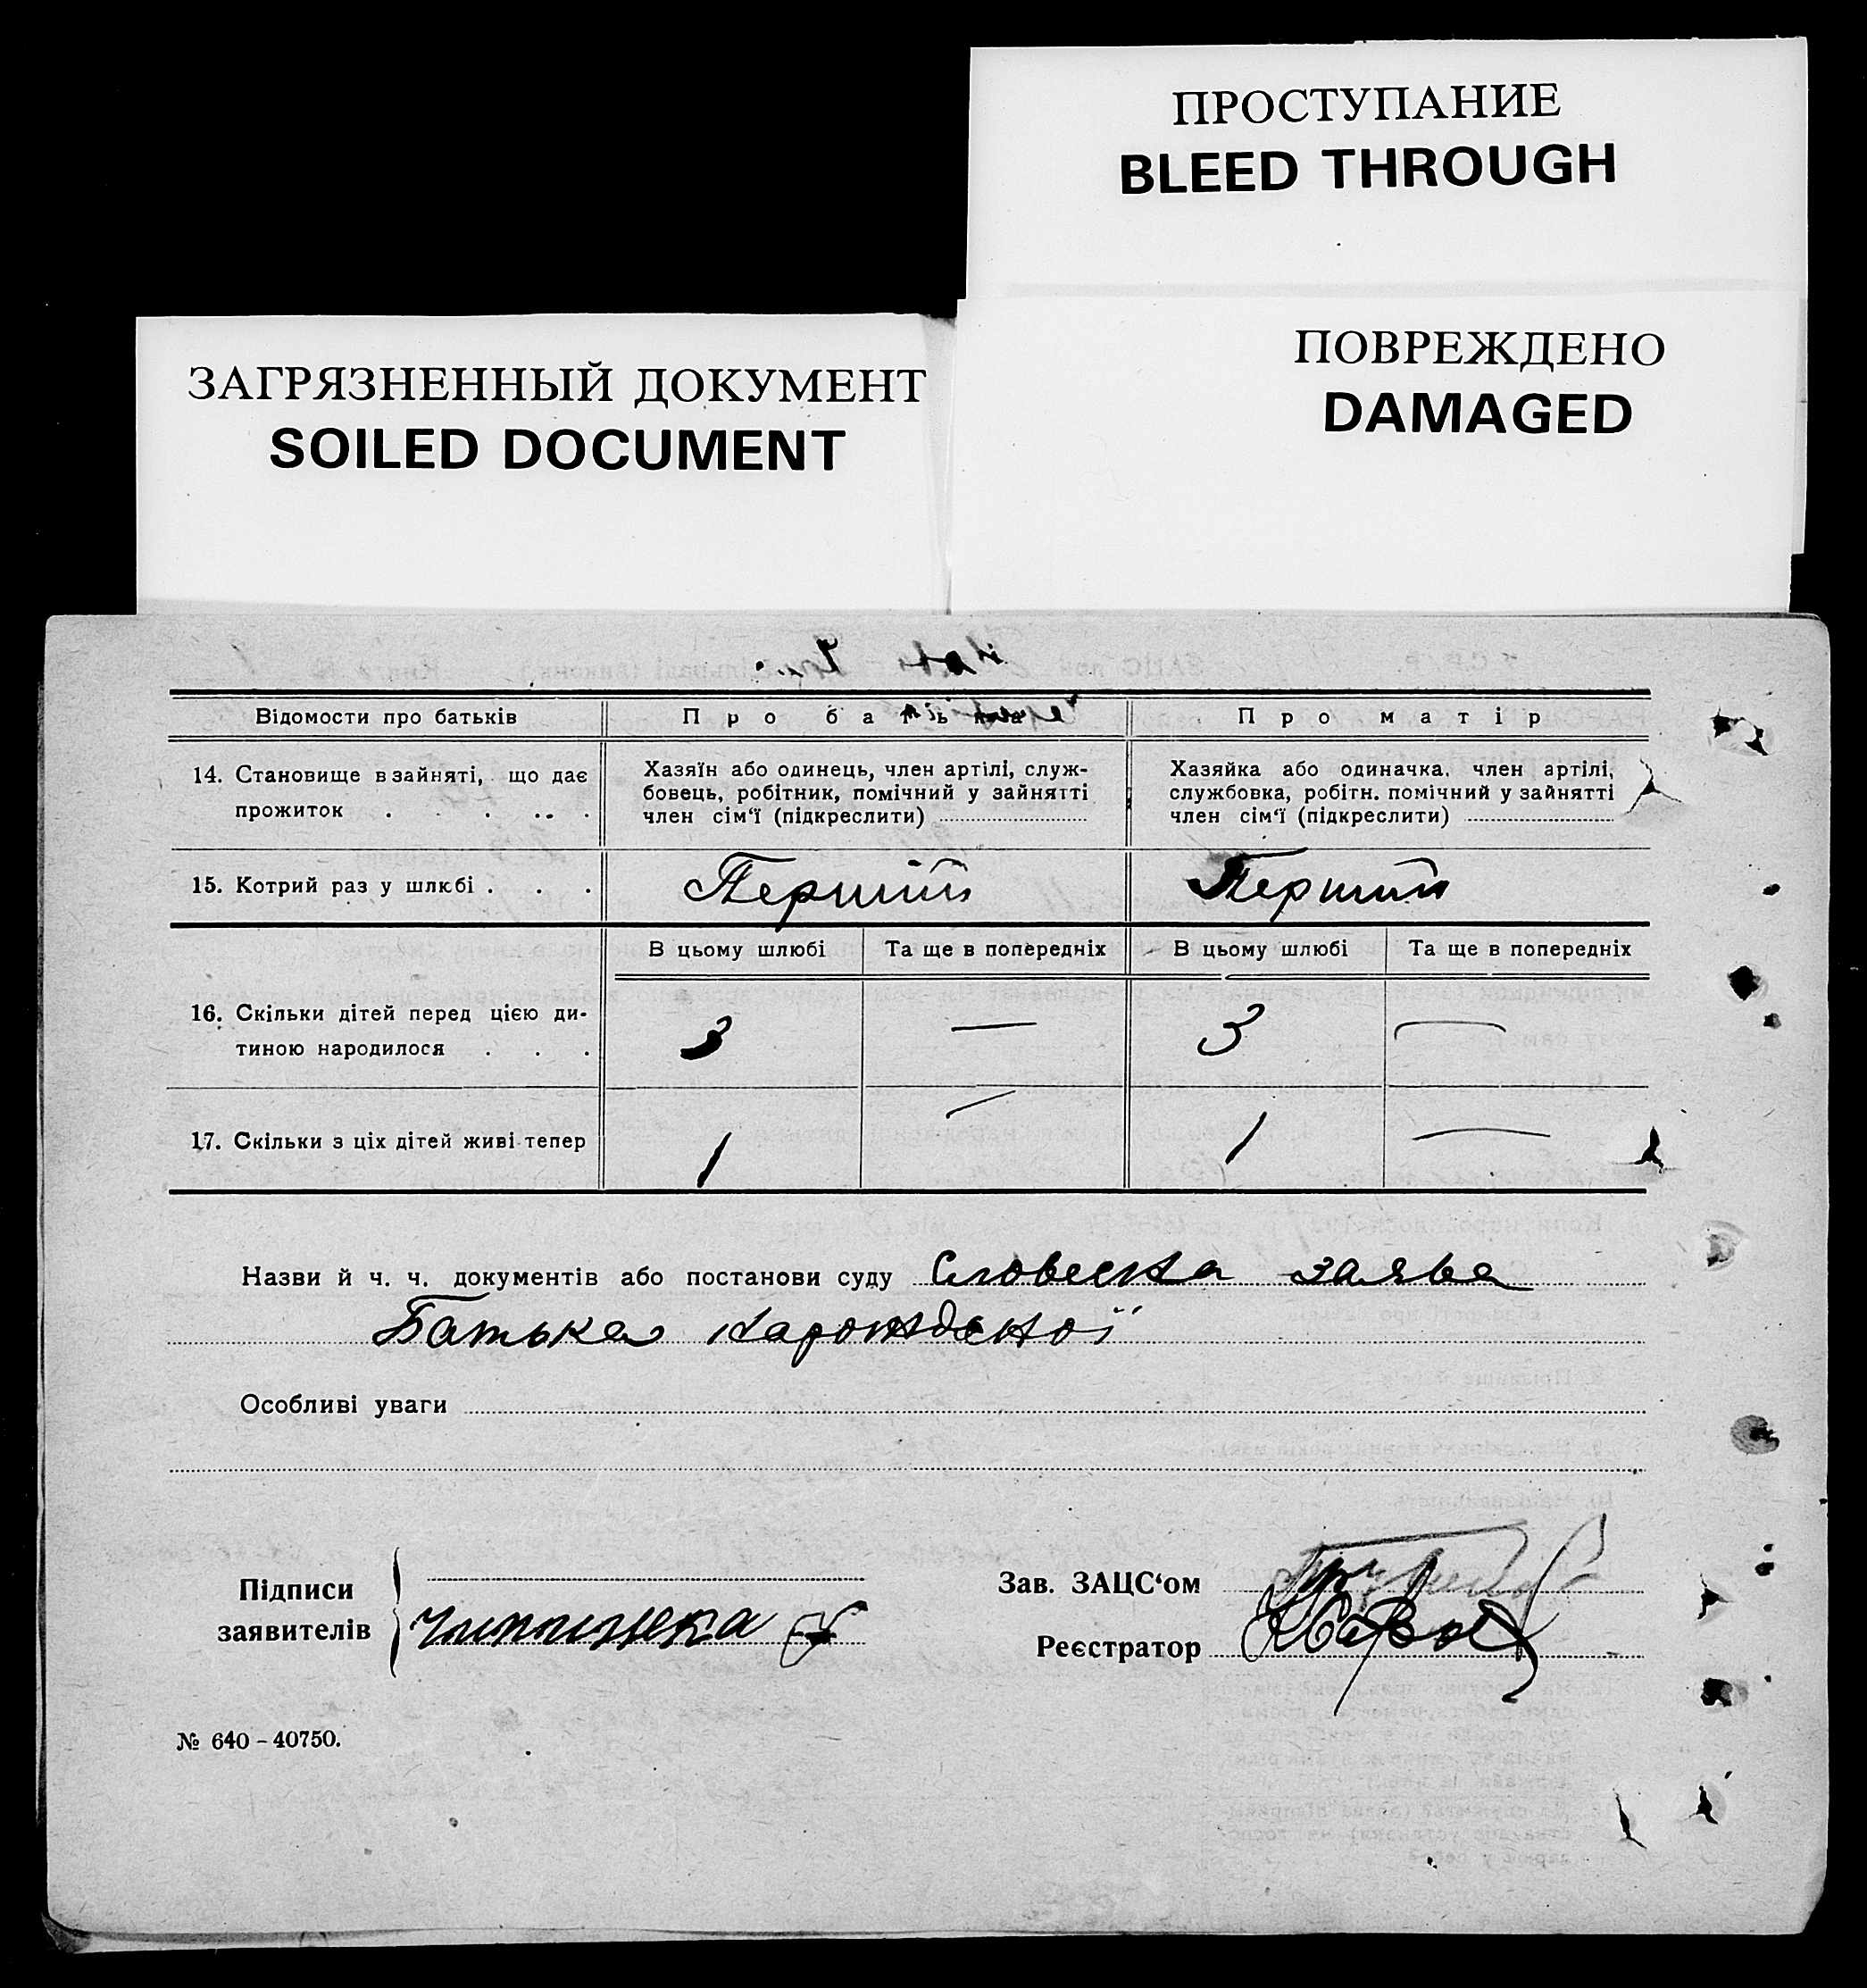 ПРОСТУПАНИЕ
BLEED THROUGH
ЗАГРЯЗНЕННЫЙ ДОКУМЕНТ
SOILED DOCUMENT
ПОВРЕЖДЕНО
DAMAGED
Відомости про батьків Про батька Про матір
14. Становище в зайняті, що дає прожиток . . . .
Хазяїн або одинець, член артілі, служ-
бовець, робітник, помічний у зайнятті
член сім‘ї (підкреслити)
Хазяйка або одиначка, член артілі,
службовка, робітн. помічний у зайнятті
член сім‘ї (підкреслити)
15. Котрий раз у шлюбі . . . Перший Перший
В цьому шлюбі Та ще в попередніх В цьому шлюбі Та ще в попередніх
16. Скільки дітей перед цією ди-
тиною народилося . . . 3 — 3 —
17. Скільки з ціх дітей живі тепер 1 — 1 —
Назви й ч. ч. документів або постанови суду Словесна заява
Батька нарожденої
Особливі уваги
Підписи
заявителів
Зав. ЗАЦС‘ом
Реєстратор
№ 640 – 40750.